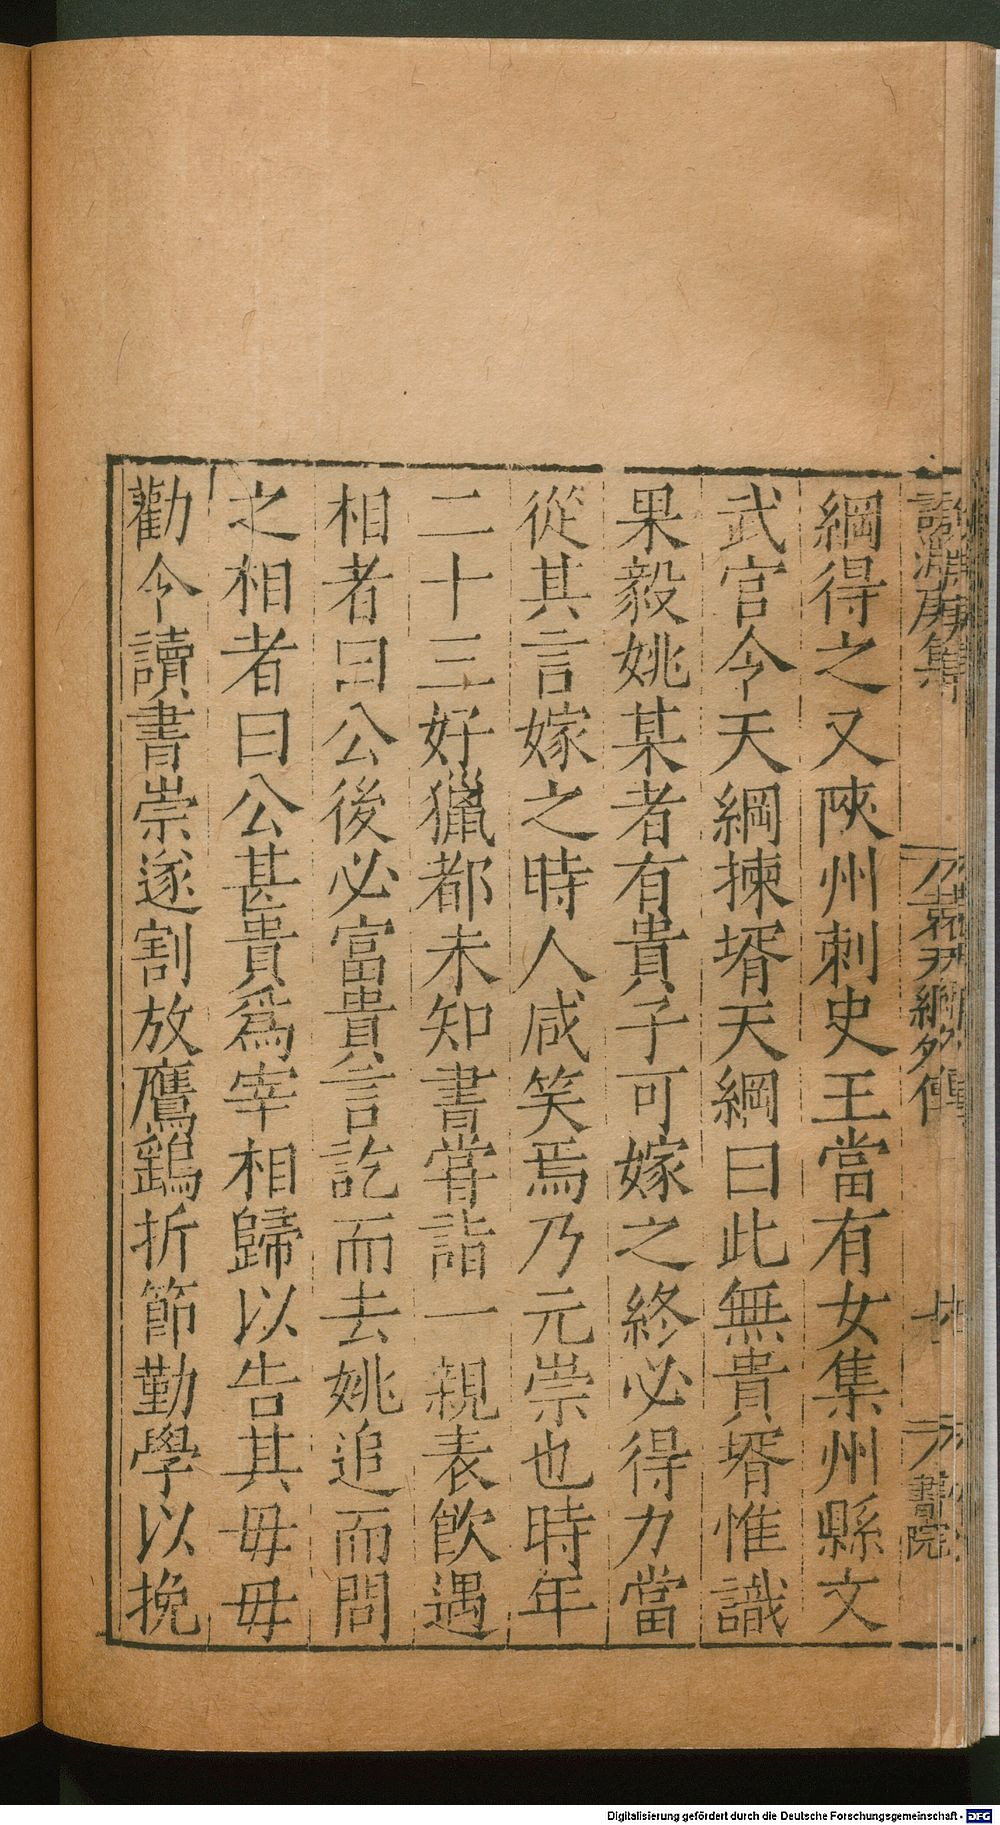 綱得之又陝州刺史王當有女集州縣文
武官令天綱揀壻天綱曰此無貴壻惟識
果毅姚某者有貴子可嫁之終必得力當
從其言嫁之時人咸笑焉乃元崇也時年
二十三好獵都未知書甞詣一親表飲遇
相者曰公後必富貴言訖而去姚追而問
之相者曰公甚貴爲宰相歸以告其毋毋
勸令讀書崇遂割放鷹鷂折節勤學以挽
袁天綱外傳
書院
Digitalisierung gefördert durch die Deutsche Forschungsgemeinschaft - DFG